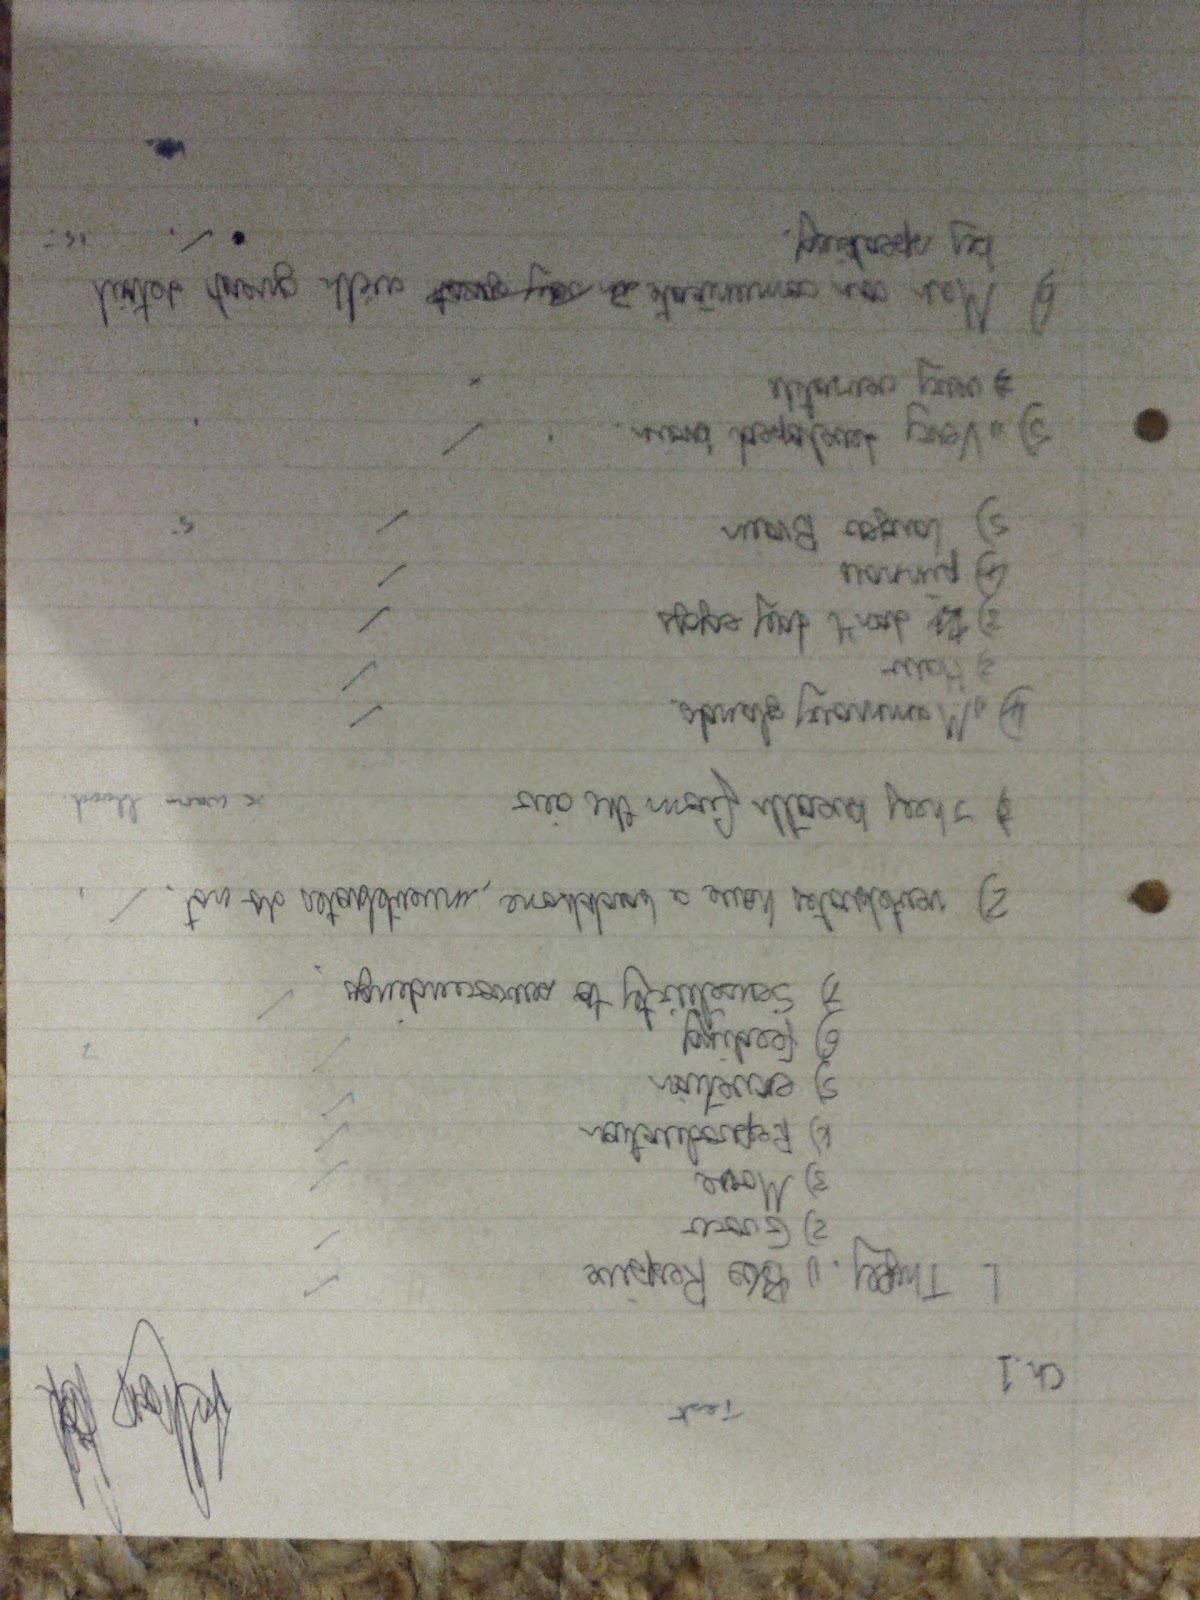 Test
Ch. 1
1. They. 1) Respire
2) Grow
3) Move
4) Reproduction
5) excretion
6) feeding
7) Sensitivity to surroundings
2) vertebrates have a backbone, invertebrates do not.
3) They breath from the air x warm blood
4) 1) Mammary glands
2) Hair
3) don't lay eggs
4) pinnae
5) larger Brain
5) 1) Very developed brain
2) very versatile
6) Man can communicate with great detail
by speaking.